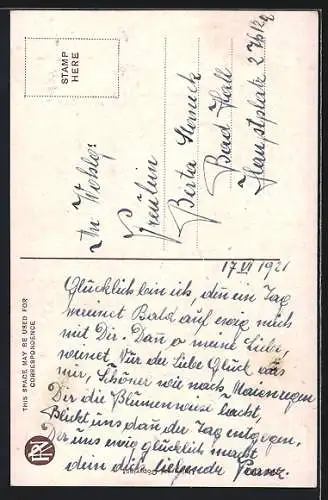 STAMP
HERE
Fräulein
Berta
Bad Hall
Hauptplatz 2
THIS SPACE MAY BE USED FOR
CORRESPONDENCE
17 VI 1921
Glücklich bin ich, den ein Tag
Bald auf ewig mich
mit Dir. Dan o meine Liebe,
Nur der Liebe Glück
mir, Schöner wie nach Maienregen
Dir die Blumenweise lacht,
Blickt uns dan der Tag entgegen,
Der uns ewig glücklich macht
dein dich liebender Franz